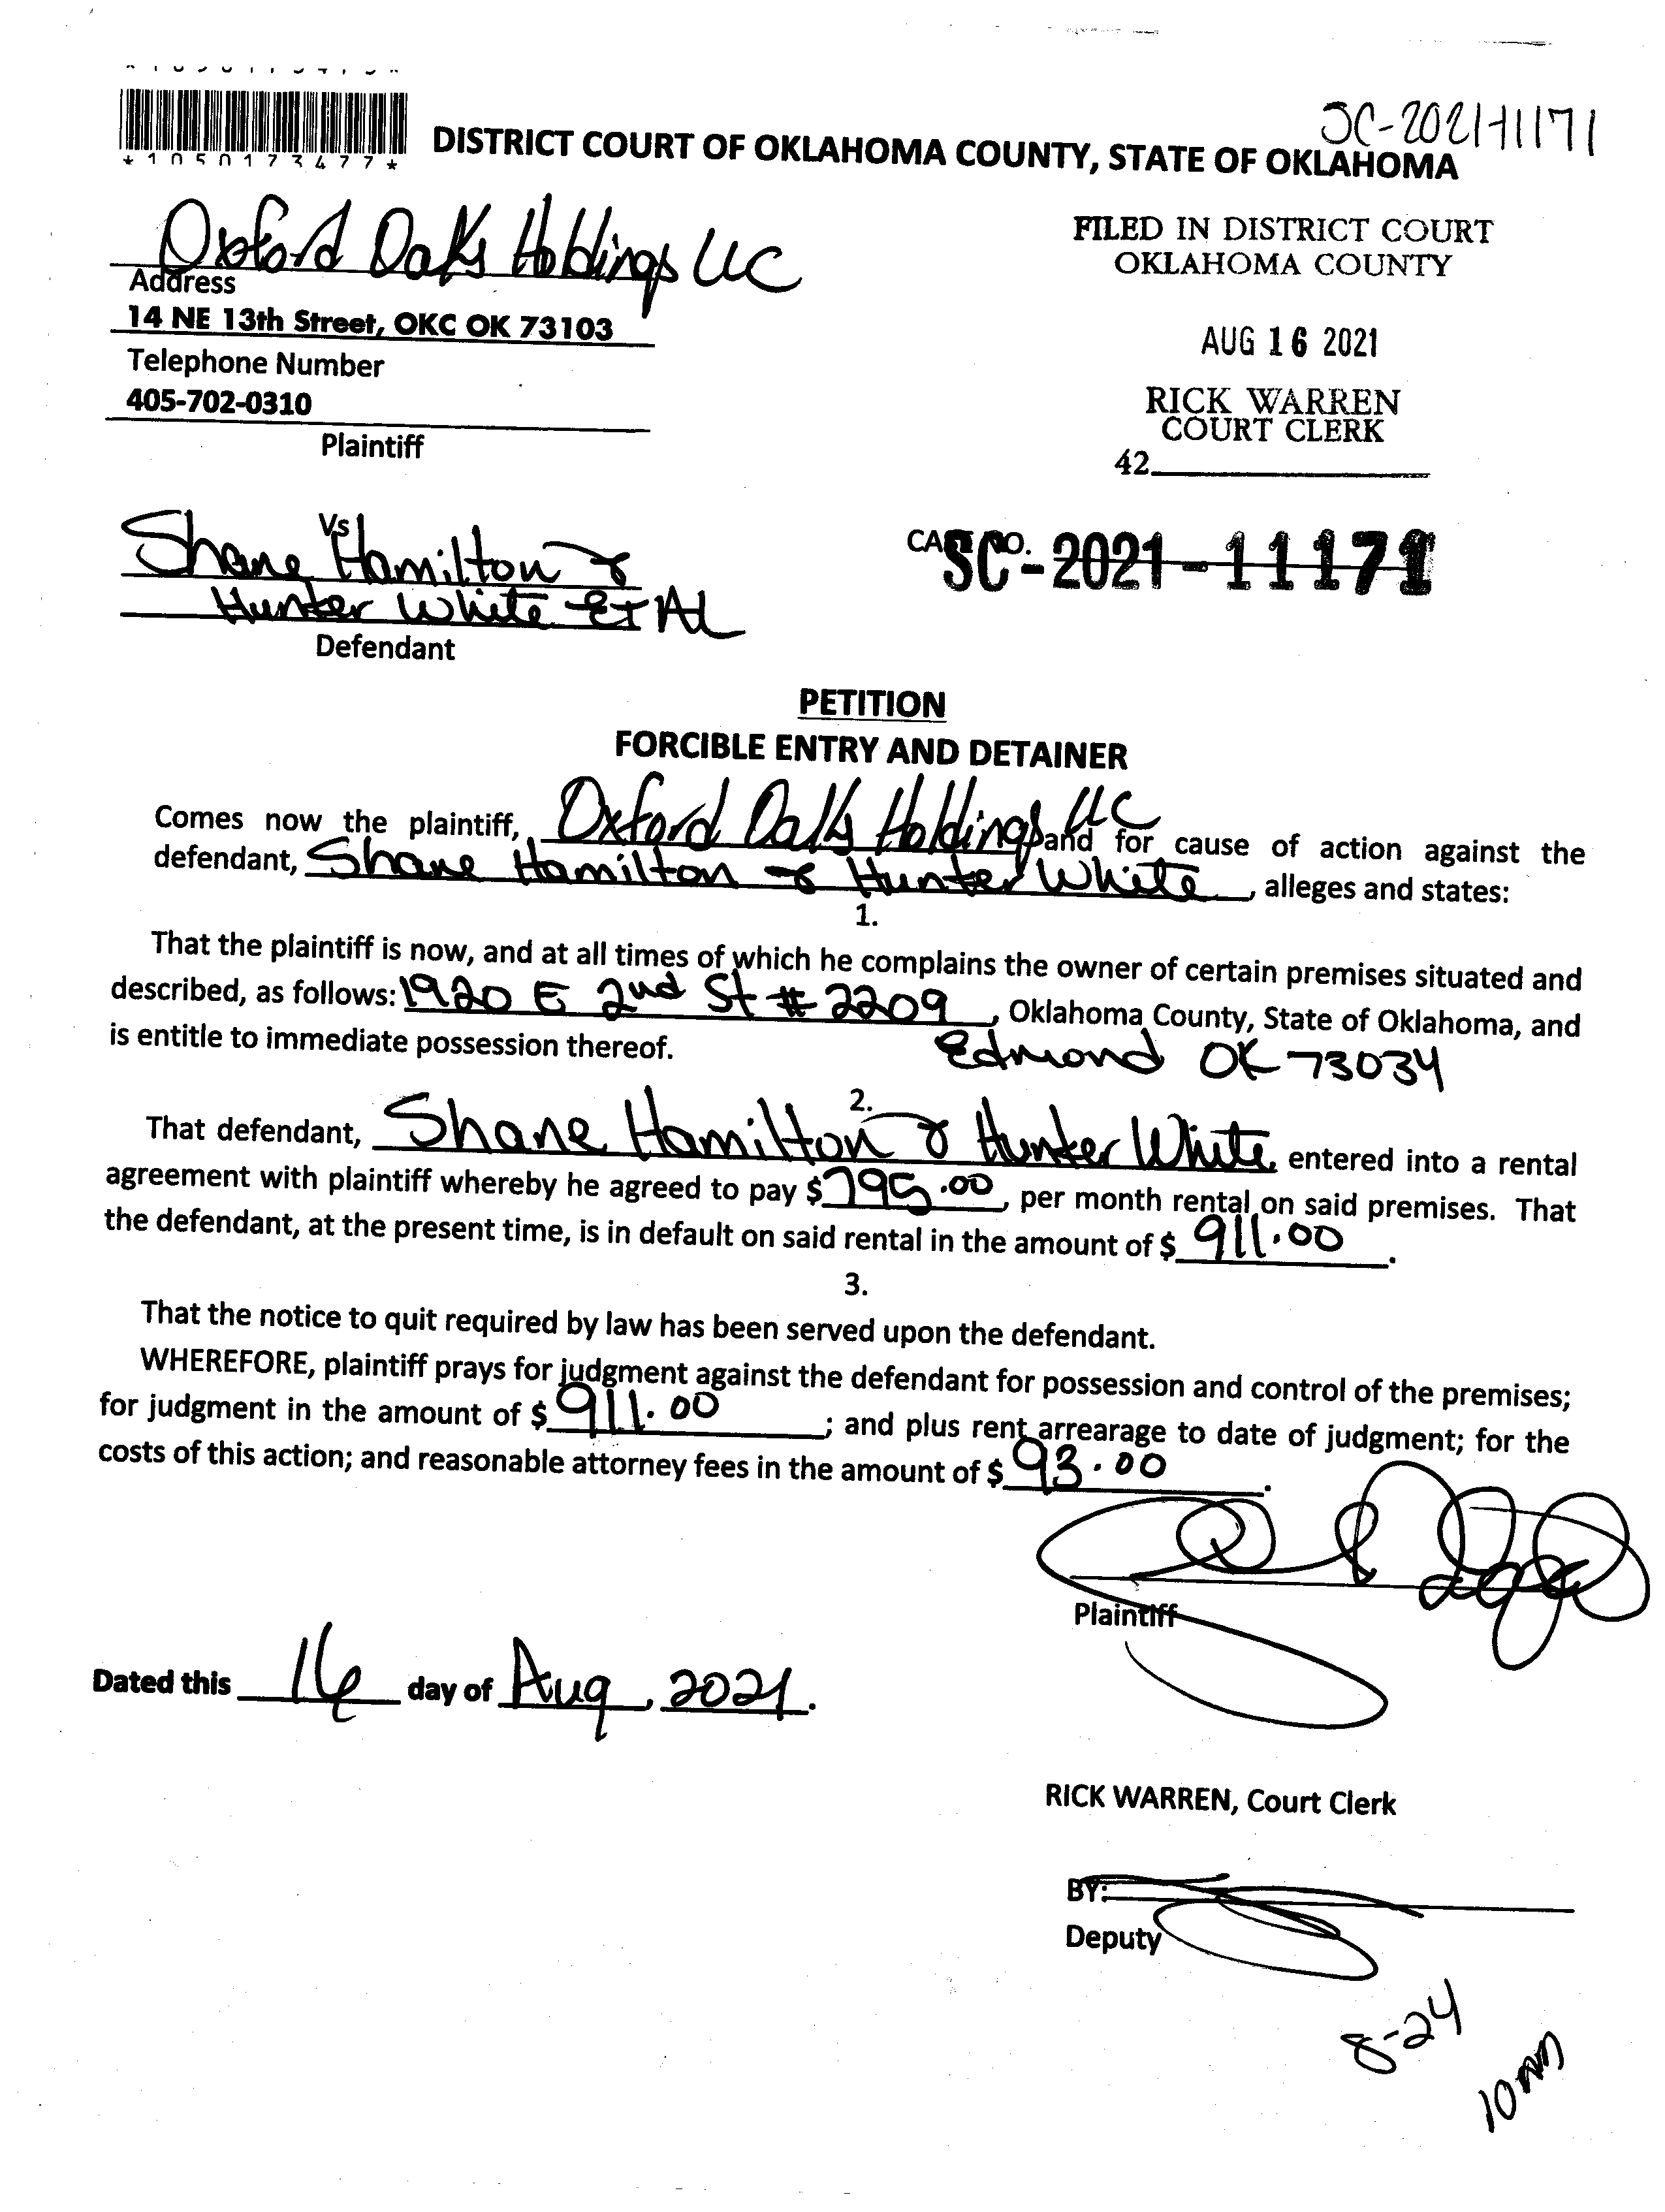 *1050173477*
SC-2021-11171
DISTRICT COURT OF OKLAHOMA COUNTY, STATE OF OKLAHOMA
Oxford Oaks Holdings LLC
Address
14 NE 13th Street, OKC OK 73103
Telephone Number
405-702-0310
Plaintiff
FILED IN DISTRICT COURT
OKLAHOMA COUNTY
AUG 16 2021
RICK WARREN
COURT CLERK
42
Vs
Shane Hamilton &
Hunter White ET AL
Defendant
CASE NO. SC-2021-11171
PETITION
FORCIBLE ENTRY AND DETAINER
Comes now the plaintiff, Oxford Oaks Holdings LLC and for cause of action against the
defendant, Shane Hamilton & Hunter White, alleges and states:
1.
That the plaintiff is now, and at all times of which he complains the owner of certain premises situated and
described, as follows: 1920 E 2nd St # 2209, Oklahoma County, State of Oklahoma, and
is entitle to immediate possession thereof. Edmond OK 73034
2.
That defendant, Shane Hamilton & Hunter White, entered into a rental
agreement with plaintiff whereby he agreed to pay $795.00, per month rental on said premises. That
the defendant, at the present time, is in default on said rental in the amount of $ 911.00.
3.
That the notice to quit required by law has been served upon the defendant.
WHEREFORE, plaintiff prays for judgment against the defendant for possession and control of the premises;
for judgment in the amount of $ 911.00; and plus rent arrearage to date of judgment; for the
costs of this action; and reasonable attorney fees in the amount of $ 93.00.
Plaintiff
Dated this 16 day of Aug, 2021.
RICK WARREN, Court Clerk
BY:
Deputy
8-24
10am